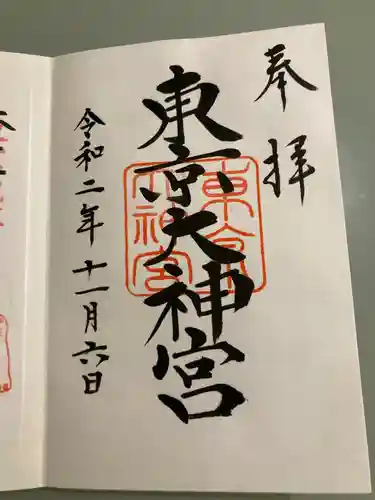 奉拝
東京大神宮
東京大神宮
令和二年十一月六日